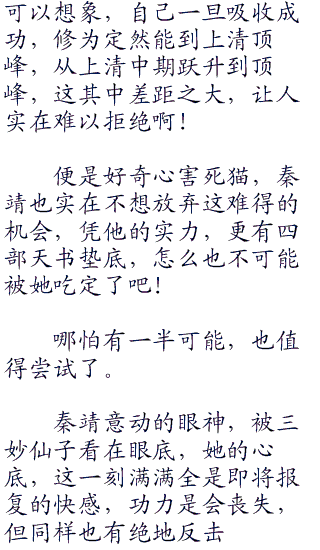 可以想象，自己一旦吸收成
功，修为定然能到上清顶
峰，从上清中期跃升到顶
峰，这其中差距之大，让人
实在难以拒绝啊！
便是好奇心害死猫，秦
靖也实在不想放弃这难得的
机会，凭他的实力，更有四
部天书垫底，怎么也不可能
被她吃定了吧！
哪怕有一半可能，也值
得尝试了。
秦靖意动的眼神，被三
妙仙子看在眼底，她的心
底，这一刻满满全是即将报
复的快感，功力是会丧失，
但同样也有绝地反击